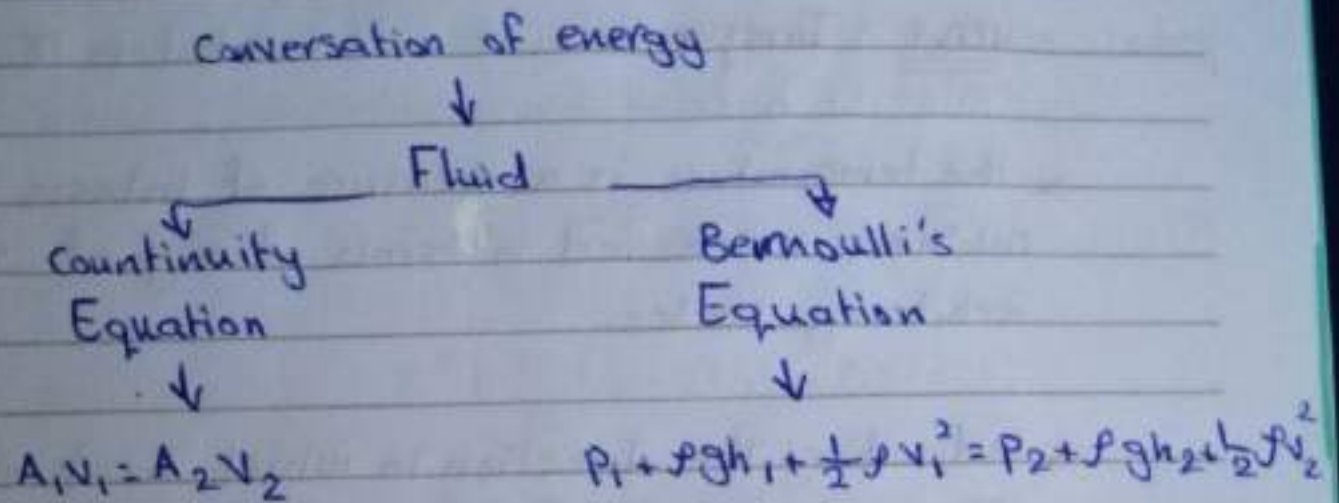 Conversation of energy
↓
Fluid
Countinuity
Equation
↓
A₁V₁ = A₂V₂
Bernoulli's
Equation
↓
P₁ + ρgh₁ + ½ ρv₁² = P₂ + ρgh₂ + ½ ρv₂²